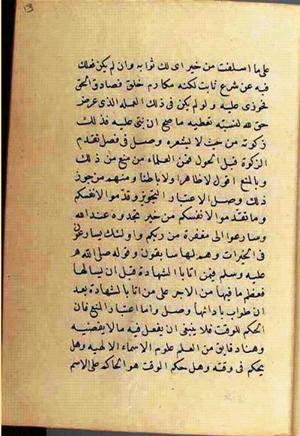 على ما اسلفت من خير اى لك ثوابه وان لم يكن فعلك
فيه عن شرع ثابت لكنه مكارم خلق فصادق الحق
فجوزى عليه ولو لم يكن فى ذلك العمله الذى عرض
حق لله لنسبته تعطيه ما صح ان يثنى عليه فذلك
زكوته من حيث لا يشعر وصل فى فصل تقديم
الزكوة قبل الحول فمن العلماء من منع من ذلك
وبالمنع اقول لا ظاهرا ولا باطنا ومنهم من جوز
ذلك وصل الاعتبار التجوز وقدموا لانفسكم
وما تقدموا لانفسكم من خير تجدوه عند الله
وسارعوا الى مغفرة من ربكم واولئك يسارعون
فى الخيرات وهم لها سابقون وقوله صلى الله
عليه وسلم فيمن اتا بالشهادة قبل ان يسالها
فعظم ما فيها من الاجر على من اتا بالشهادة بعد
ان طولب بادائها وصل واما اعتبار المنع فان
الحكم للوقت فلا ينبغى ان يفعل فيه ما لا يقتضيه
وهنا دقايق من العلم علوم الاسماء الالهية وهل
يحكم فى وقته وهل حكم الوقت هو الحاكم على الاسم